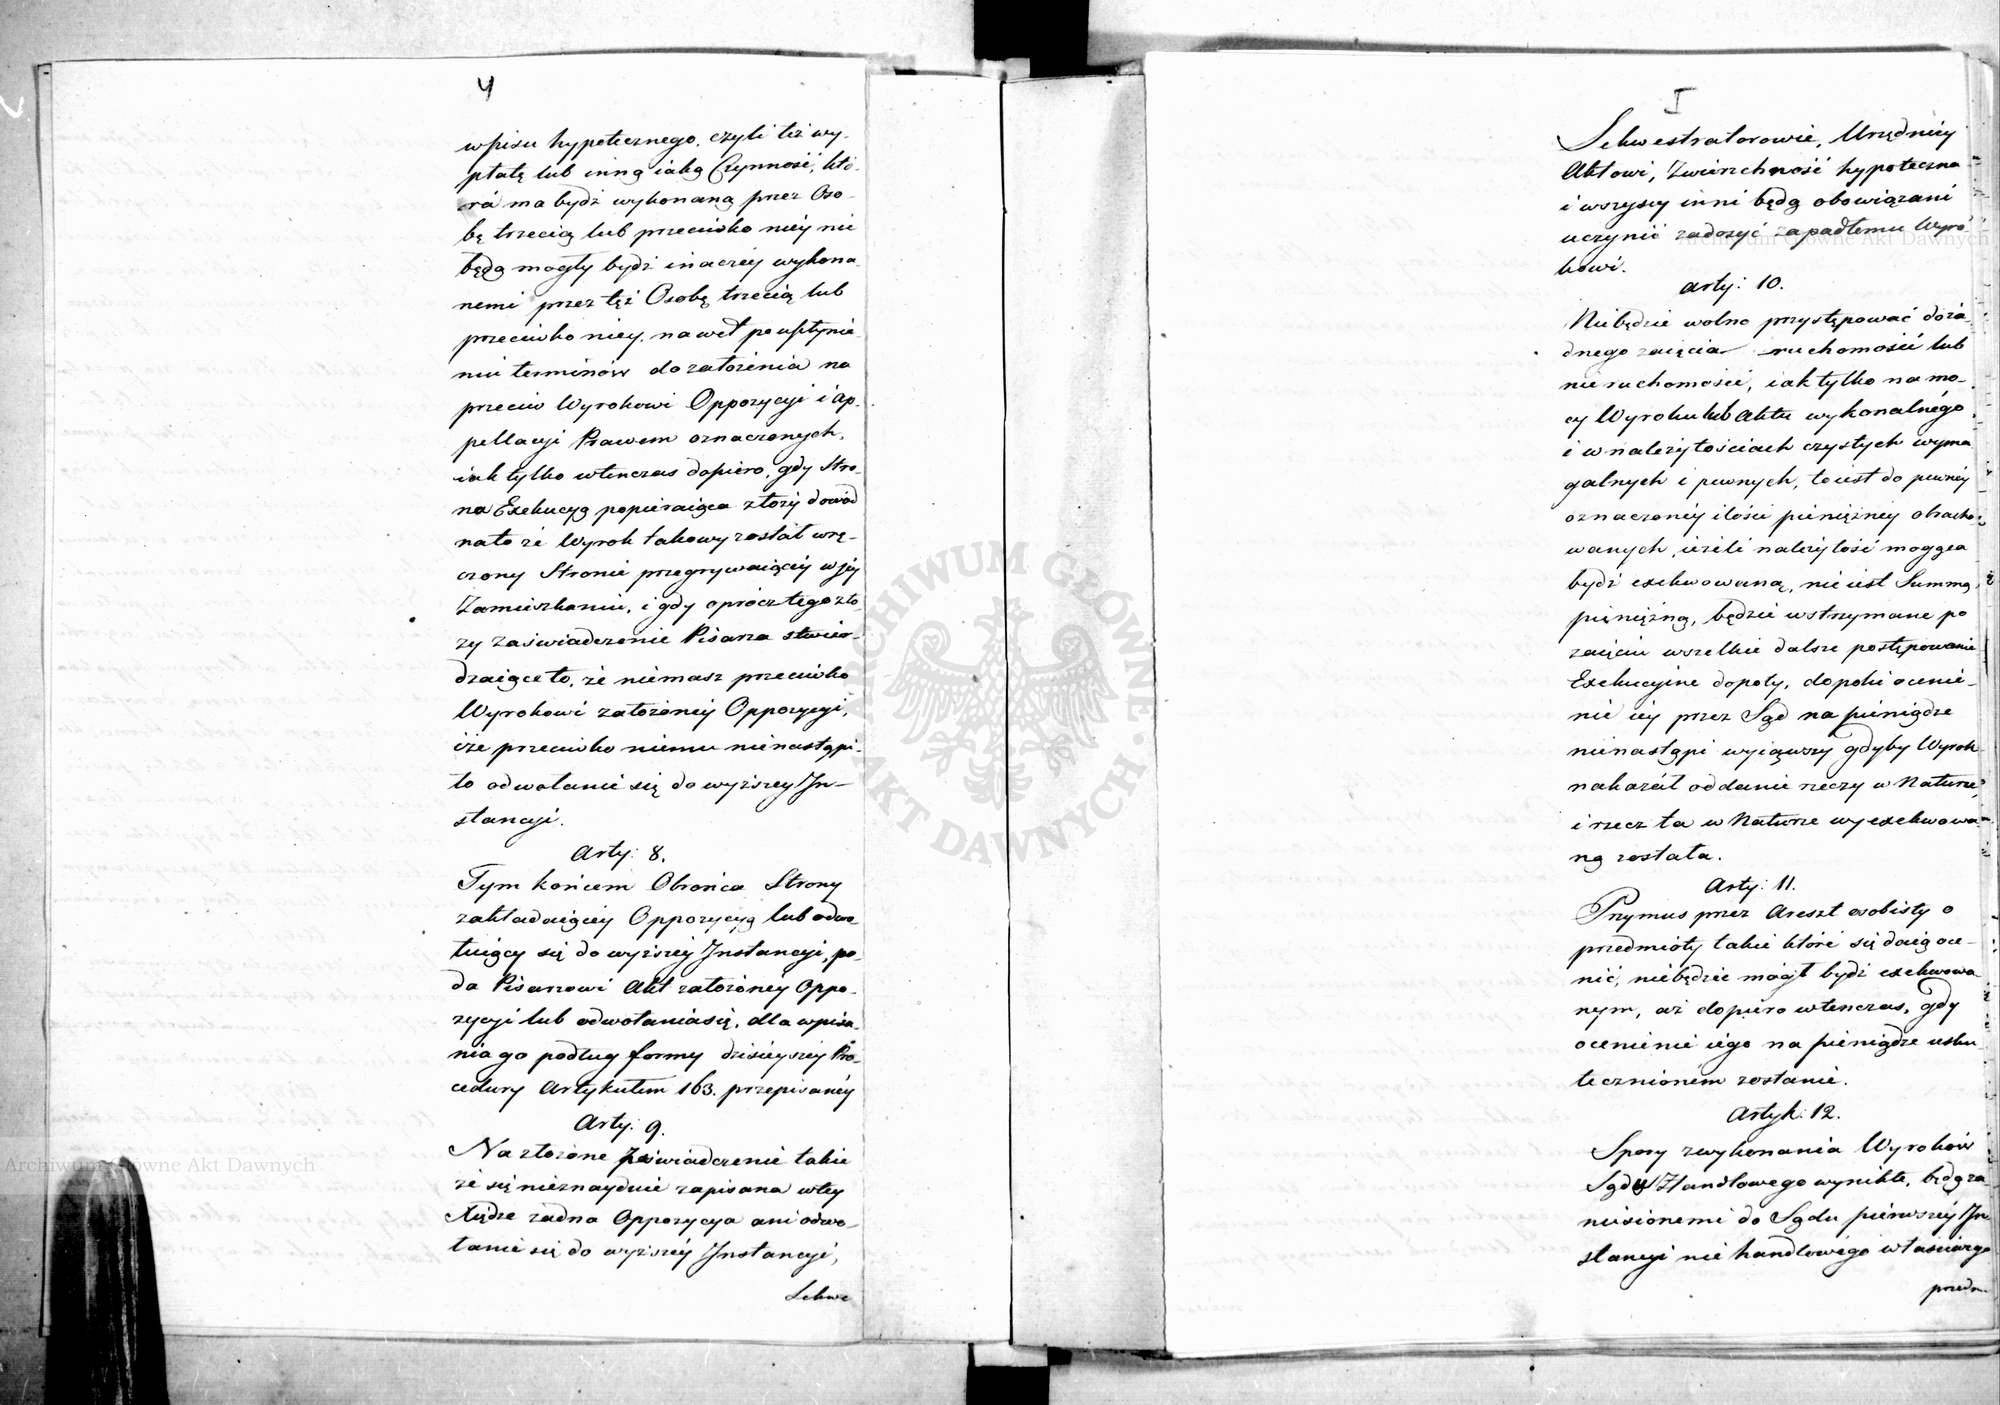 4
wpisu hypotecznego, czyli też wy-
płatę lub inną iaką Czynność, któ-
rá ma bydź wykonaną przez Oso-
bę trzecią lub przeciwko niéy nie
będą mogły bydź inaczéy wykona-
nemi przez tęż Osobę trzecią lub
przeciwko niey, nawet po upłynie-
niu terminów do założenia na
przeciw Wyrokowi Oppozycyi i Ap-
pellacyi Prawem oznaczonych,
iak tylko wtenczas dopiero, gdy Stro-
na Exekucyą popieraiąca złoży dowód
na to że Wyrok takowy został wrę-
czony Stronie przegrywaiącéy w jéy
Zamieszkaniu, i gdy oprócz tego zło-
ży zaświadczenie Pisarza stwier-
dzaiące to, że niemasz przeciwko
Wyrokowi założonéy Oppozycyi,
i że przeciwko niemu nienastąpi-
ło odwołanie się do wyższey In-
stancyi.
Arty: 8.
Tym końcem Obrońca Strony
zakładaiącéy Oppozycyą lub odwo-
łuiący się do wyższéy Instancyi, po-
da Pisarzowi Akt założonéy Oppo-
zycyi lub odwołania się, dla wpisa-
nia go podług formy dzisieyszéy Pro-
cedury Artykułem 163. przepisanéy
Arty: 9.
Na złożone Zaświadczenie takie
że się nieznayduie zapisana w tey
Xiędze żadna Oppozycya ani odwo-
łanie się do wyższéy Instancyi,
Sekwe
I
Sekwestratorowie, Urzędnicy
Aktowi, Zwierzchność hypoteczna
i wszyscy inni będą obowiązani
uczynić zadosyć zapadłemu Wyro-
kowi.
Arty: 10.
Niebędzie wolno przystępować do ża-
dnego zaięcia ruchomości lub
nieruchomości, iak tylko na mo-
cy Wyroku lub Aktu wykonalnégo
i w należytościach czystych wyma
galnych i pewnych, to iest do pewnéy
oznaczonéy ilości pieniężney obracho-
wanych, ieżeli należytość mogąca
bydź exekwowaną, nie iest Summą
pieniężną, będzie wstrzymane po
zaięciu wszelkie dalsze postępowanie
Exekucyjne dopoty, dopoki ocenie-
nie iéy przez Sąd na pieniądze
nienastąpi wyiąwszy gdyby Wyrok
nakazał oddanie rzeczy w Naturze,
i rzecz ta w Naturze wyexekwowa-
ną została.
Arty: 11.
Przymus przez Areszt osobisty o
przedmioty takie które się daią oce-
nić, niebędzie mógł bydź exekwowa-
nym, aż dopiero wtenczas, gdy
ocenienie iégo na pieniądze usku
tecznioném zostanie.
Artyk: 12.
Spory z wykonania Wyroków
Sądu Handlowego wynikłe, będą za
niesionemi do Sądu pierwszéy In
stancyi nie handlowégo właściwego
przedm
Archiwum Główne Akt Dawnych
Archiwum Główne Akt Dawnych
ARCHIWUM GŁÓWNE · AKT DAWNYCH ·